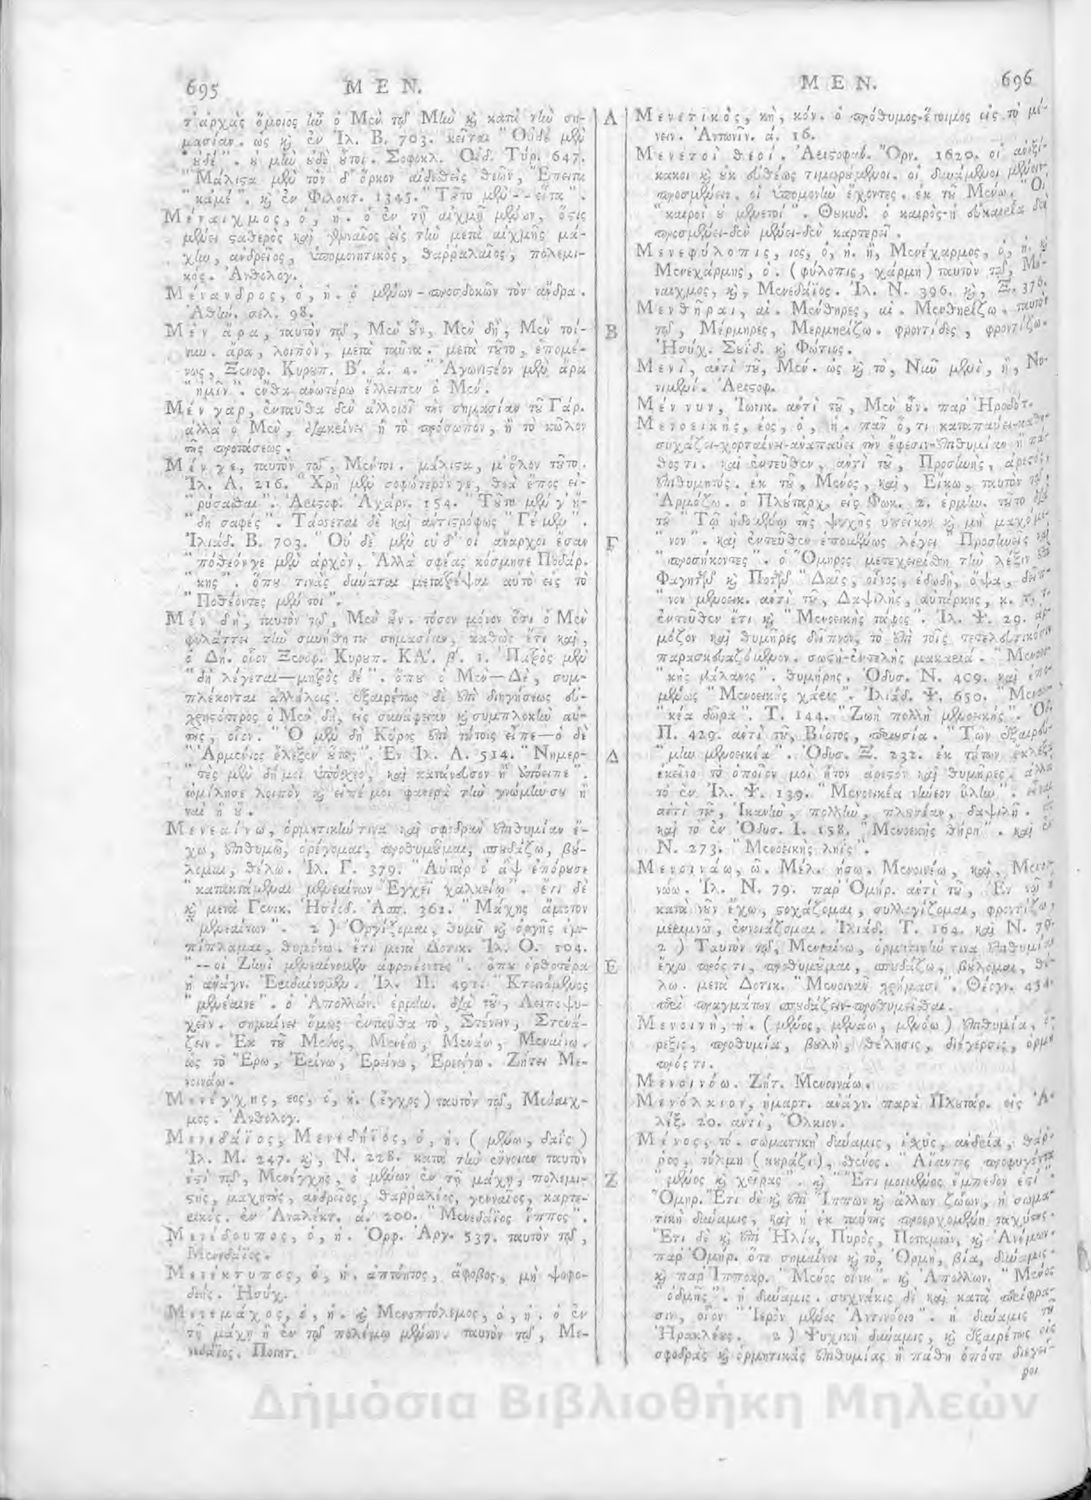 695 ΜΕΝ.
τ' ἀρχὰς ὅμοιος ὢν ὁ Μὲν τῷ Μὴν καὶ κατὰ τὴν ση-
μασίαν. ὡς καὶ ἐν Ἰλ. Β. 703. κεῖται "Οὐδὲ μὲν
"οὐδὲ". οὐ μὴν οὐδὲ οὗτοι. Σοφοκλ. Οἰδ. Τύρ. 647.
"Μάλιστα μὲν τόν δ' ὅρκον αἰδεσθεὶς θεῶν, Ἔπειτα
"κᾀμέ". καὶ ἐν Φιλοκτ. 1345. "Τοῦτο μὲν--εἶτα".
Μέναιχμος, ὁ, ἡ. ὁ ἐν τῇ αἰχμῇ μένων, ὅστις
μένει σταθερὸς καὶ γενναῖος εἰς τὴν μετὰ αἰχμῆς μά-
χην, ἀνδρεῖος, ὑπομονητικὸς, θαῤῥαλαῖος, πολεμι-
κός. Ἀνθολογ.
Μένανδρος, ὁ, ἡ. ὁ μένων-προσδοκῶν τὸν ἄνδρα.
Ἀθήν. σελ. 98.
Μὲν ἄρα, ταυτὸν τῷ, Μὲν οὖν, Μὲν δὴ, Μὲν τοί-
νυν. ἄρα, λοιπὸν, μετὰ ταῦτα. μετὰ τοῦτο, ἑπομέ-
νως, Ξενοφ. Κυρουπ. Β'. ά. 4. "Ἀγωνιστέον μὲν ἄρα
"ἡμῖν". ἔνθα ἀνωτέρω ἔλλειπεν ὁ Μέν.
Μὲν γὰρ, ἐνταῦθα δὲν ἀλλοιοῖ τὴν σημασίαν τοῦ Γάρ.
ἀλλὰ ὁ Μὲν, διακρίνει ἢ τὸ πρόσωπον, ἢ τὸ κῶλον
τῆς προτάσεως.
Μὲν γε, ταυτὸν τῷ, Μέντοι. μάλιστα, μ' ὅλον τοῦτο.
Ἰλ. Α. 216. "Χρὴ μὲν σφωΐτερόν γε, θεὰ ἔπος εἰ-
"ρύσασθαι". Ἀριστοφ. Ἀχάρν. 154. "Τοῦτο μὲν γ' ἤ-
"δη σαφές". Τάσσεται δὲ καὶ ἀντιστρόφως "Γὲ μὲν".
Ἰλιάδ. Β. 703. "Οὐ δὲ μὲν οὐ δ' οἱ ἄναρχοι ἔσαν
"πόθεόν γε μὲν ἀρχόν, Ἀλλά σφεας κόσμησε Ποδάρ-
"κης". ὅπου τινὰς δύναται μεταστρέψαι αὐτὸ εἰς τὸ
"Ποθέοντες μέν τοι".
Μὲν δὴ, ταυτὸν τῷ, Μὲν οὖν. τόσον μόνον ὅτι ὁ Μὲν
φυλάττει τὴν συνήθη τε σημασίαν, καθὼς ἔτι καὶ,
ὁ Δή. οἷον Ξενοφ. Κυρουπ. ΚΑ'. β'. 1. "Πατρὸς μὲν
"δὴ λέγεται—μητρὸς δὲ". ὅπου ὁ Μὲν—Δὲ, συμ-
πλέκονται ἀλλήλοις. ἐξαιρέτως δὲ ἐπὶ διηγήσεως εὔ-
χρηστότερος ὁ Μὲν δὴ, εἰς συνάφειαν καὶ συμπλοκὴν αὐ-
τῆς, οἷον. "Ὁ μὲν δὴ Κῦρος ἐπὶ τούτοις εἶπε—ὁ δὲ
"Ἀρμένιος ἔλεξεν οὕτως". Ἐν Ἰλ. Α. 514. "Νημερ-
"τὲς μὲν δή μοι ὑπόσχεο, καὶ κατάνευσον ἢ ἀπόειπε".
ὡμίλησε λοιπὸν καὶ εἰπέ μοι φανερὰ τὴν γνώμην σου ἢ
ναὶ ἢ οὔ.
Μενεαίνω, ὁρμητικήν τινα καὶ σφοδρὰν ἐπιθυμίαν ἔ-
χω, ἐπιθυμῶ, ὀρέγομαι, προθυμοῦμαι, σπουδάζω, βού-
λομαι, θέλω. Ἰλ. Γ. 379. "Αὐτὰρ ὁ ἂψ ἐπόρουσε
"κατακτάμεναι μενεαίνων Ἔγχεϊ χαλκείῳ". ἔτι δὲ
καὶ μετὰ Γενικ. Ἡσιόδ. Ἀσπ. 361. "Μάχης ἄμοτον
"μενεαίνων". 2) Ὀργίζομαι, θυμοῦ καὶ ὀργῆς ἐμ-
πίπλαμαι, θυμόνω. ἔτι μετὰ Δοτικ. Ἰλ. Ο. 104.
"--οἳ Ζηνὶ μενεαίνομεν ἀφρονέοντες". ὅπου ὀρθοτέρα
ἡ ἀνάγν. Ἐριδαίνομεν. Ἰλ. Π. 491. "Κτεινόμενος
"μενέαινε". ὁ Ἀπολλών. ἑρμην. διὰ τοῦ, Λειποψυ-
χεῖν. σημαίνει ὅμως ἐνταῦθα τὸ, Στένειν, Στενά-
ζειν. Ἐκ τοῦ Μένος, Μενέω, Μενάω, Μεναίνω.
ὡς τὸ Ἔρω, Ἐείνω, Ἐρείνω, Ἐρεείνω. Ζήτει Με-
νοινάω.
Μενέγχης, εος, ὁ, ἡ. (ἔγχος) ταυτὸν τῷ, Μέναιχ-
μος. Ἀνθολογ.
Μενεδάϊος, Μενεδήϊος, ὁ, ἡ. (μένω, δαῒς)
Ἰλ. Μ. 247. καὶ, Ν. 228. κατὰ τὴν ἔννοιαν ταυτὸν
ἐστὶ τῷ, Μενέγχης, ὁ μένων ἐν τῇ μάχῃ, πολεμι-
στὴς, μαχητὴς, ἀνδρεῖος, θαῤῥαλέος, γενναῖος, καρτε-
ρικός. ἐν Ἀναλέκτ. ά. 200. "Μενεδάϊος ἵππος".
Μενέδουπος, ὁ, ἡ. Ὀρφ. Ἀργ. 537. ταυτὸν τῷ,
Μενεδάϊος.
Μενέκτυπος, ὁ, ἡ. ἀπτόητος, ἄφοβος, μὴ ψοφο-
δεής. Ἡσύχ.
Μενεμάχος, ὁ, ἡ. καὶ Μενεπτόλεμος, ὁ, ἡ. ὁ ἐν
τῇ μάχῃ ἢ ἐν τῷ πολέμῳ μένων. ταυτὸν τῷ, Με-
νεδάϊος. Ποιητ.
Α
Β
Γ
Δ
Ε
Ζ
ΜΕΝ. 696
Μενετικὸς, κὴ, κόν. ὁ πρόθυμος-ἕτοιμος εἰς τὸ μέ-
νειν. Ἀντωνῖν. ά. 16.
Μενετοὶ θεοί. Ἀριστοφάν. Ὄρν. 1620. οἱ ἀνεξί-
κακοι καὶ οὐκ εὐθέως τιμωρούμενοι. οἱ δυνάμενοι μένειν,
προσμένειν. οἱ ὑπομονὴν ἔχοντες. ἐκ τοῦ Μένω. "Οἱ
"καιροὶ οὐ μενετοὶ". Θουκυδ. ὁ καιρὸς-ἡ εὐκαιρία δὲν
προσμένει-δὲν μένει-δὲν καρτερεῖ.
Μενεφύλοπις, ιος, ὁ, ἡ. ἢ, Μενέχαρμος, ὁ, ἡ. καὶ
Μενεχάρμης, ὁ. (φύλοπις, χάρμη) ταυτὸν τῷ, Μέ-
ναιχμος, καὶ, Μενεδάϊος. Ἰλ. Ν. 396. καὶ, Ξ. 376.
Μενθῆραι, αἱ. Μενθῆρες, αἱ. Μενθηρίζω. ταυτὸν
τῷ, Μέρμηρες, Μερμηρίζω. φροντίδες, φροντίζω.
Ἡσύχ. Σουΐδ. καὶ Φώτιος.
Μενὶ, ἀντὶ τοῦ, Μέν. ὡς καὶ τὸ, Νῦν μενὶ, ἢ, Νυ-
νιμενί. Ἀριστοφ.
Μέν νυν, Ἰωνικ. ἀντὶ τοῦ, Μὲν οὖν. παρ' Ἡροδότ.
Μενοεικὴς, έος, ὁ, ἡ. πᾶν ὅ,τι καταπαύει-καθη-
συχάζει-χορταίνει-ἀναπαύει τὴν ἔφεσιν-ἐπιθυμίαν ἢ πά-
θος τι. καὶ ἐντεῦθεν, ἀντὶ τοῦ, Προσηνὴς, ἀρεστὸς,
ἐπιθυμητός. ἐκ τοῦ, Μένος, καὶ, Εἴκω, ταυτὸν τῷ,
Ἁρμόζω. ὁ Πλούταρχ. εἰς Φωκ. 2. ἑρμην. τοῦτο διὰ
τοῦ "Τῷ ἡδομένῳ τῆς ψυχῆς ὑπεῖκον καὶ μὴ μαχόμε-
"νον". καὶ ἐντεῦθεν ἑπομένως λέγει "Προσηνεῖς καὶ
"προσήκοντες". ὁ Ὅμηρος μετεχειρίσθη τὴν λέξιν ἐπὶ
Φαγητῶν καὶ Ποτῶν "Δαῒς, οἶνος, ἐδωδὴ, ὄψα, δεῖπ-
"νον μενοεικ. ἀντὶ τοῦ, Δαψιλὴς, αὐτάρκης, κ. τ. λ.
ἐντεῦθεν ἔτι καὶ "Μενοεικὴς τάφος". Ἰλ. Ψ. 29. ἁρ-
μόζον καὶ θυμῆρες δεῖπνον, τὸ ἐπὶ τοῖς τετελευτηκόσι
παρασκευαζόμενον. σωστὴ-ἐντελὴς μακαρία. "Μενοει-
"κὴς μάλανος". θυμήρης. Ὀδυσ. Ν. 409. καὶ ἑπο-
μένως "Μενοεικὴς χάρις". Ἰλιάδ. Ψ. 650. "Μενοει-
"κέα δῶρα". Τ. 144. "Ζωὴ πολλὴ μενοεικής". Ὀδ.
Π. 429. ἀντὶ τοῦ, Βίοτος, περιουσία. "Τῶν ἐξαιρού-
"μην μενοεικέα". Ὀδυσ. Ξ. 232. ἐκ τούτων ἔκλεξα
ἐκεῖνο τὸ ὁποῖον μοὶ ἦτον ἀρεστὸν καὶ θυμῆρες. ἀλλὰ
τὸ ἐν Ἰλ. Ψ. 139. "Μενοεικέα νήνεον ὕλην". εἶναι
ἀντὶ τοῦ, Ἱκανὴν, πολλὴν, πλουσίαν, δαψιλῆ.
καὶ τὸ ἐν Ὀδυσ. Ι. 158. "Μενοεικὴς θήρη". καὶ ἐν
Ν. 273. "Μενοεικὴς ληΐς".
Μενοινάω, ῶ. Μέλ. ήσω. Μενοινέω, καὶ, Μενοι-
νώω. Ἰλ. Ν. 79. παρ' Ὁμήρ. ἀντὶ τοῦ, Ἐν νῷ ἢ
κατὰ νοῦν ἔχω, στοχάζομαι, συλλογίζομαι, φροντίζω,
μεριμνῶ, ἐννοιάζομαι. Ἰλιάδ. Τ. 164. καὶ Ν. 79.
2) Ταυτὸν τῷ, Μενεαίνω, ὁρμητικήν τινα ἐπιθυμίαν
ἔχω πρός τι, προθυμοῦμαι, σπουδάζω, βούλομαι, θέ-
λω. μετὰ Δοτικ. "Μενοινᾶν χρήμασι". Θέογν. 434.
περὶ πραγμάτων σπουδάζειν-προθυμεῖσθαι.
Μενοινὴ, ἡ. (μένος, μενάω, μενόω) ἐπιθυμία, ὄ-
ρεξις, προθυμία, βουλὴ, θέλησις, διέγερσις, ὁρμὴ
πρός τι.
Μενοινόω. Ζήτ. Μενοινάω.
Μενόλκιον, ἡμαρτ. ἀνάγν. παρὰ Πλουτάρ. εἰς Ἀ-
λέξ. 20. ἀντὶ, Ὅλκιον.
Μένος, τό. σωματικὴ δύναμις, ἰσχὺς, ἀνδρεία, θάρ-
ρος, τόλμη (κυράζι), σθένος. "Αἴαντος προφυγόντα
"μένος καὶ χεῖρας". καὶ "Ἔτι μοι μένος ἔμπεδον ἐστί".
Ὅμηρ. Ἔτι δὲ καὶ ἐπὶ Ἵππων καὶ ἄλλων ζώων, ἡ σωμα-
τικὴ δύναμις, καὶ ἡ ἐκ ταύτης προερχομένη ταχύτης.
Ἔτι δὲ καὶ ἐπὶ Ἡλίου, Πυρὸς, Ποταμῶν, καὶ Ἀνέμων.
παρ' Ὁμήρ. ὅτε σημαίνει καὶ τὸ, Ὁρμὴ, βία, δύναμις.
καὶ παρ' Ἱπποκρ. "Μένος οἴνου". καὶ Ἀπολλων. "Μένος
"ὀδμῆς". ἡ δύναμις. συχνάκις δὲ καὶ κατὰ περίφρα-
σιν, οἷον "Ἱερὸν μένος Ἀντινόοιο". ἡ δύναμις τοῦ
Ἡρακλέους. 2) Ψυχικὴ δύναμις, καὶ ἐξαιρέτως εἰς
σφοδρὰς καὶ ὁρμητικὰς ἐπιθυμίας ἢ πάθη ὁπόταν διεγεί-
ροι
Δημόσια Βιβλιοθήκη Μηλεών